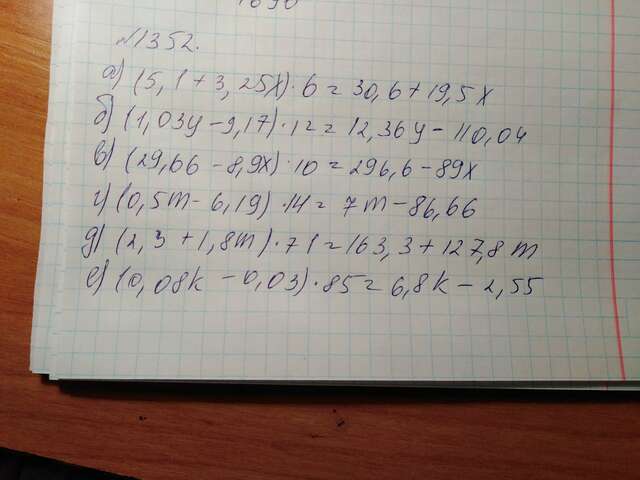 №1352.
а) (5,1+3,25x)·6=30,6+19,5x
б) (1,03y-9,17)·12=12,36y-110,04
в) (29,66-8,9x)·10=296,6-89x
г) (0,5m-6,19)·14=7m-86,66
д) (2,3+1,8m)·71=163,3+127,8m
е) (0,08k-0,03)·85=6,8k-2,55